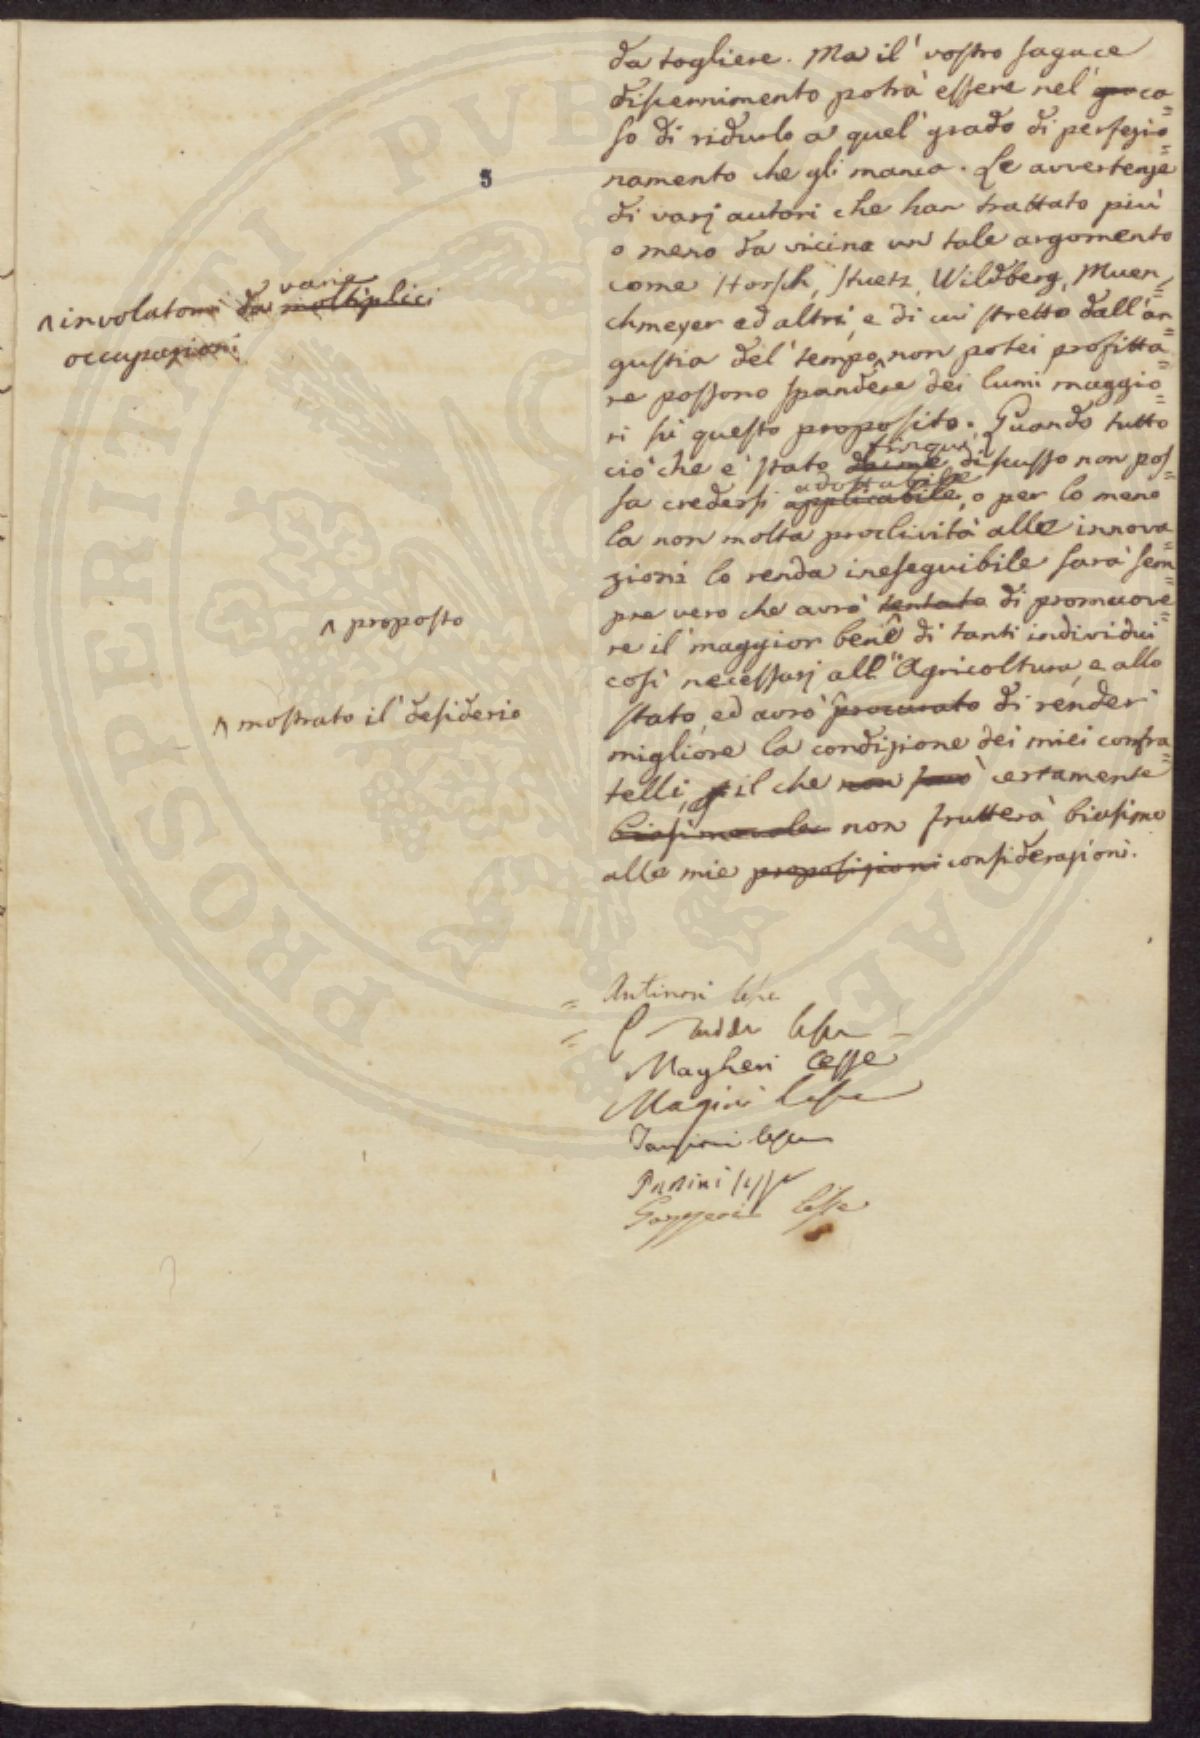 da togliere. Ma il vostro sagace
discernimento potrà essere nel ca=
so di ridurlo a quel grado di perfezio=
namento che gli manca. Le avvertenze
di varj autori che han trattato più
o meno da vicino un tale argomento
come Horsch, Stuetz, Wildberg, Muen=
chmeyer ed altri, e di cui stretto dall'an=
gustia del tempo ^ non potei profitta=
re possono spandere dei lumi maggio=
ri su questo proposito. Quando tutto
ciò che è stato da me finqui discusso non pos=
sa credersi applicabile adottabile, o per lo meno
la non molta proclività alle innova=
zioni lo renda ineseguibile sarà sem=
pre vero che avrò tentato ^ di promuove=
re il maggior bene di tanti individui
così necessarj all'Agricoltura, e allo
stato, ed avrò procurato ^ di render
migliore la condizione dei miei confra=
telli, il che non sarà certamente
biasimevole non frutterà biasimo
alle mie proposizioni considerazioni.
5
^ involatomi da moltiplici varie
occupazioni
^ proposto
^ mostrato il desiderio
Antinori lesse
Taddei lesse
Magheri lesse
Magini lesse
Targioni lesse
Passini lesse
Gazzeri lesse
PROSPERITATI PVBLICAE